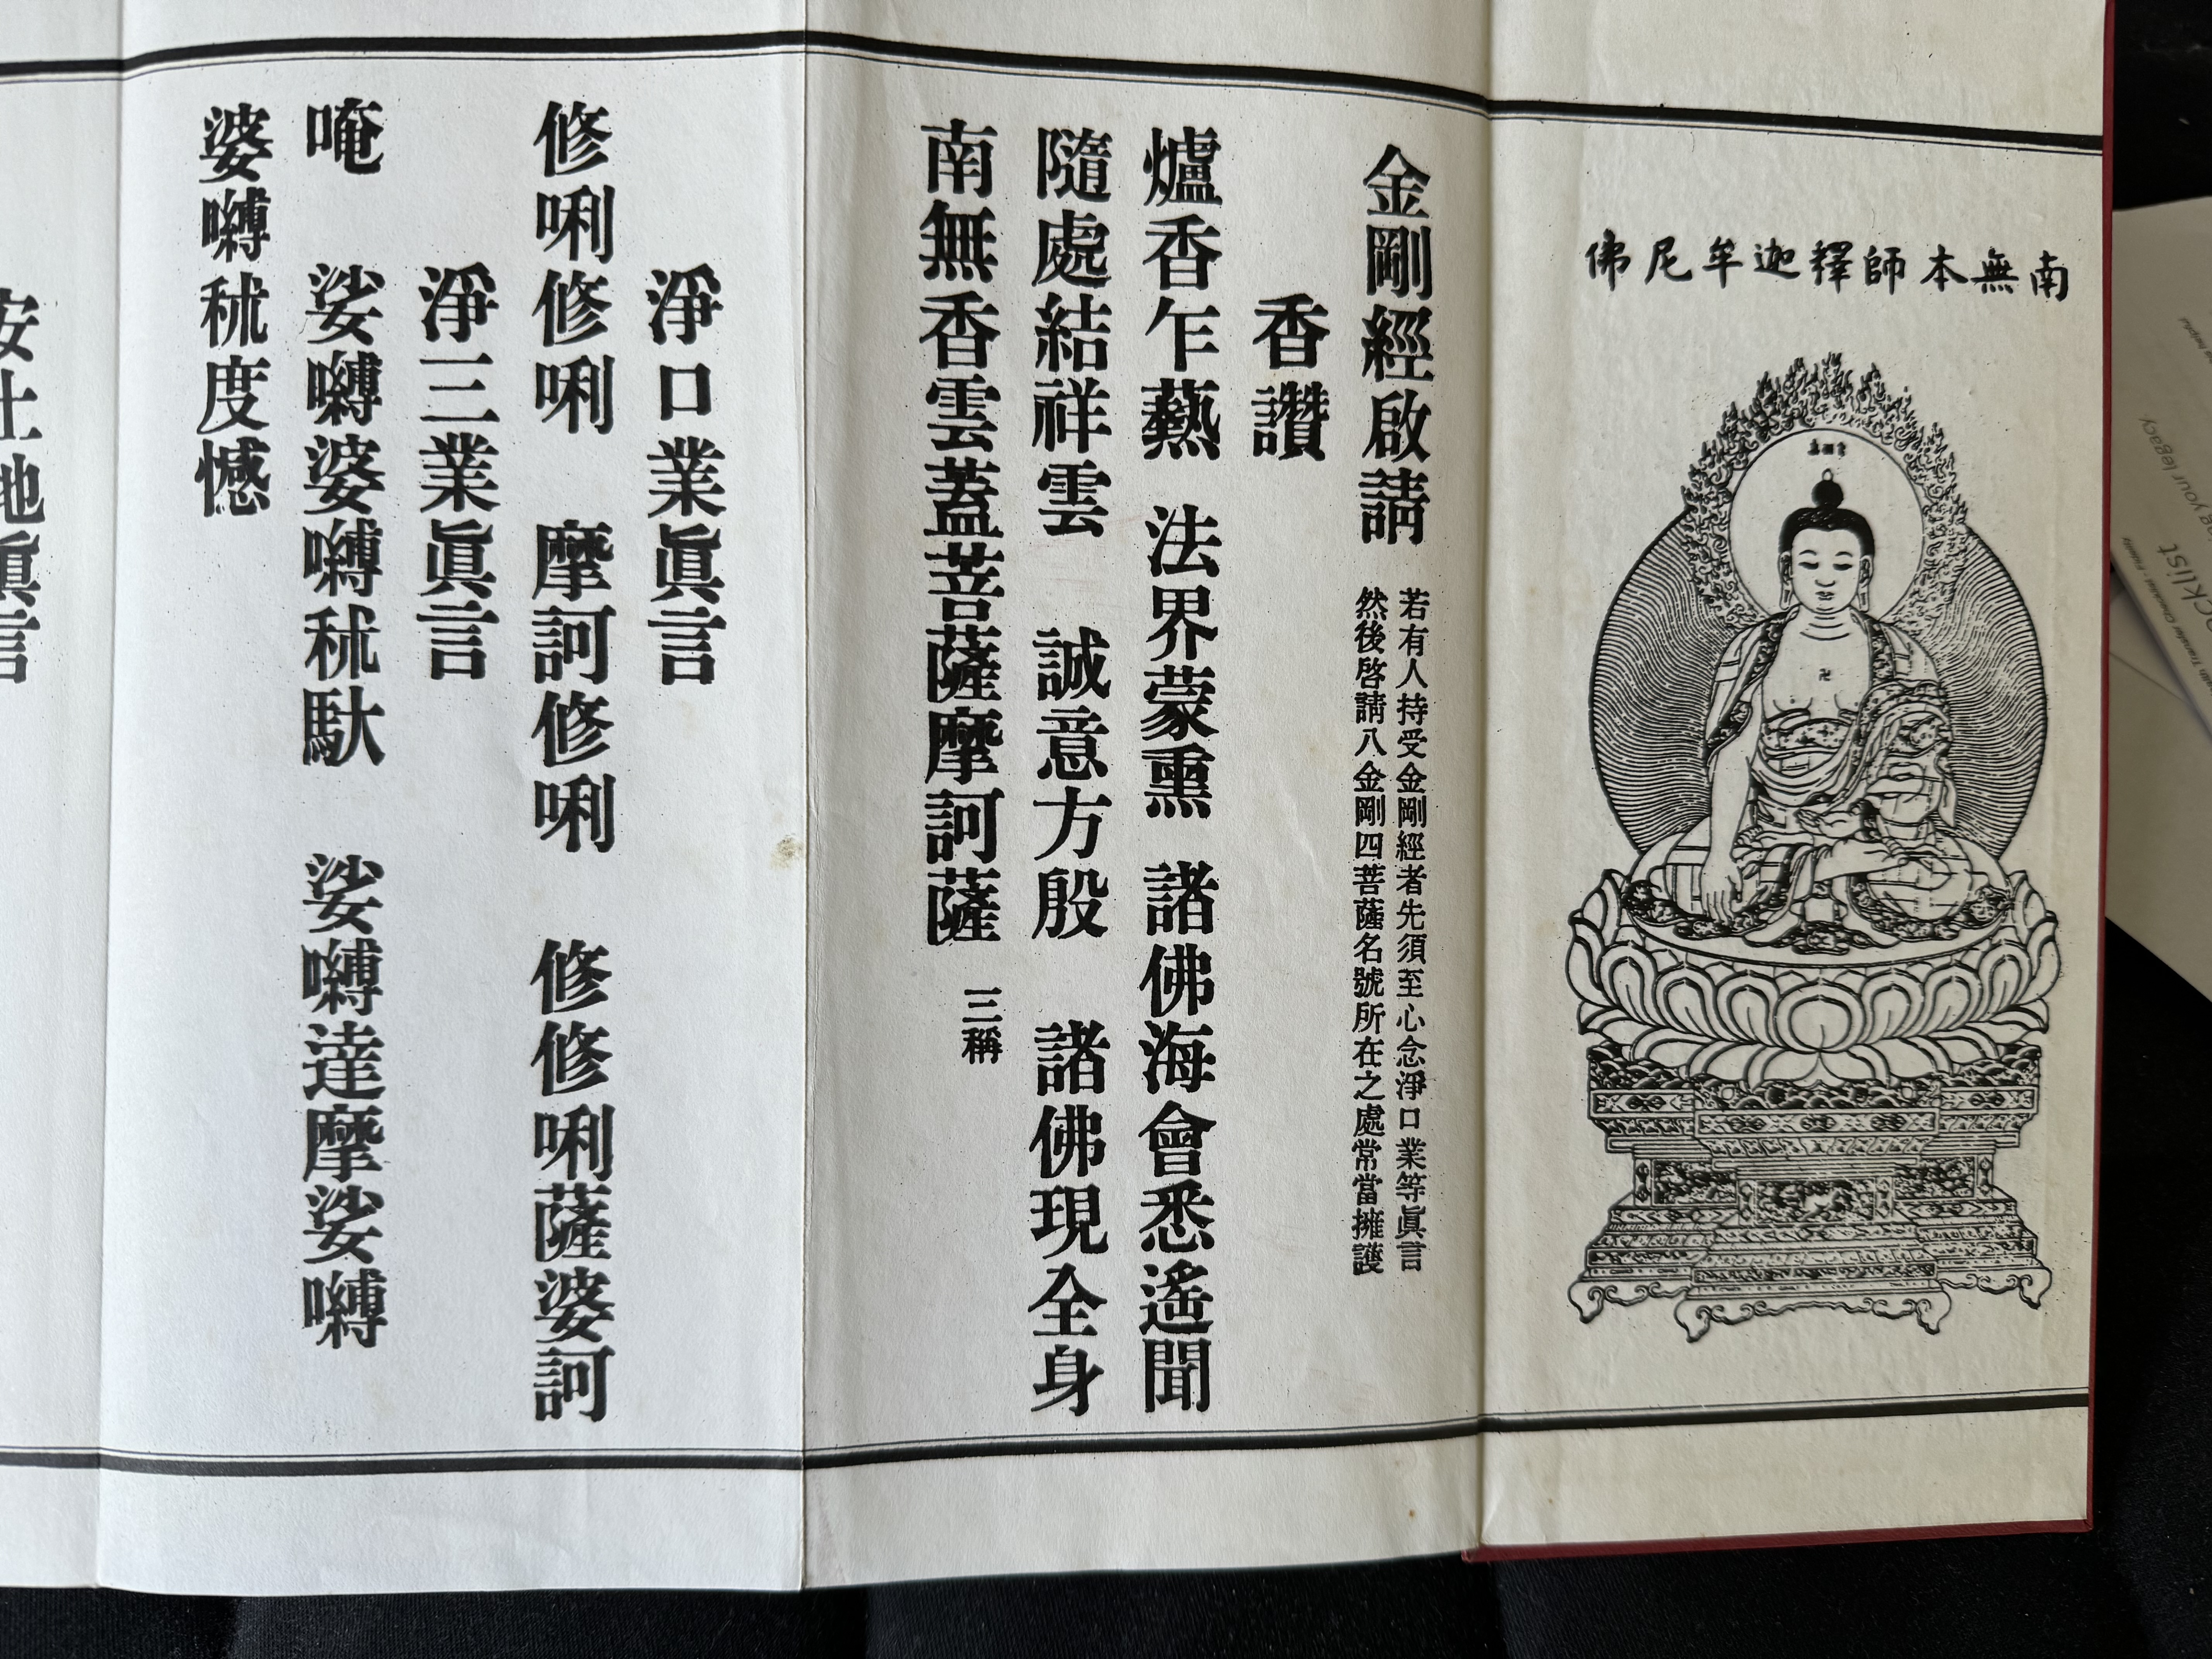 南無本師釋迦牟尼佛
金剛經啟請
若有人持受金剛經者先須至心念淨口業等眞言
然後啓請八金剛四菩薩名號所在之處常當擁護
香讚
爐香乍爇 法界蒙熏 諸佛海會悉遙聞
隨處結祥雲 誠意方殷 諸佛現全身
南無香雲蓋菩薩摩訶薩 三稱
淨口業眞言
修唎修唎 摩訶修唎 修修唎薩婆訶
淨三業眞言
唵 娑嚩婆嚩秫馱 娑嚩達摩娑嚩
婆嚩秫度憾
安土地眞言
cklist
ing your legacy